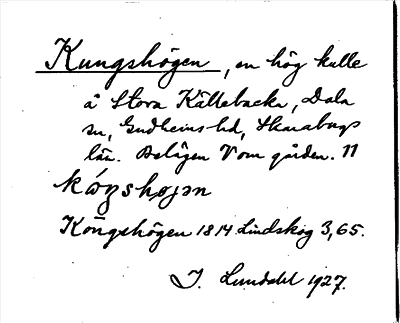 Kungshögen, en hög kulle
å Stora Källebacka, Dala
sn, Gudhems hd, Skaraborgs
län. Belägen V om gården. 11
Kongshögen 1814 Lindskog 3,65.
J. Lundahl 1927.